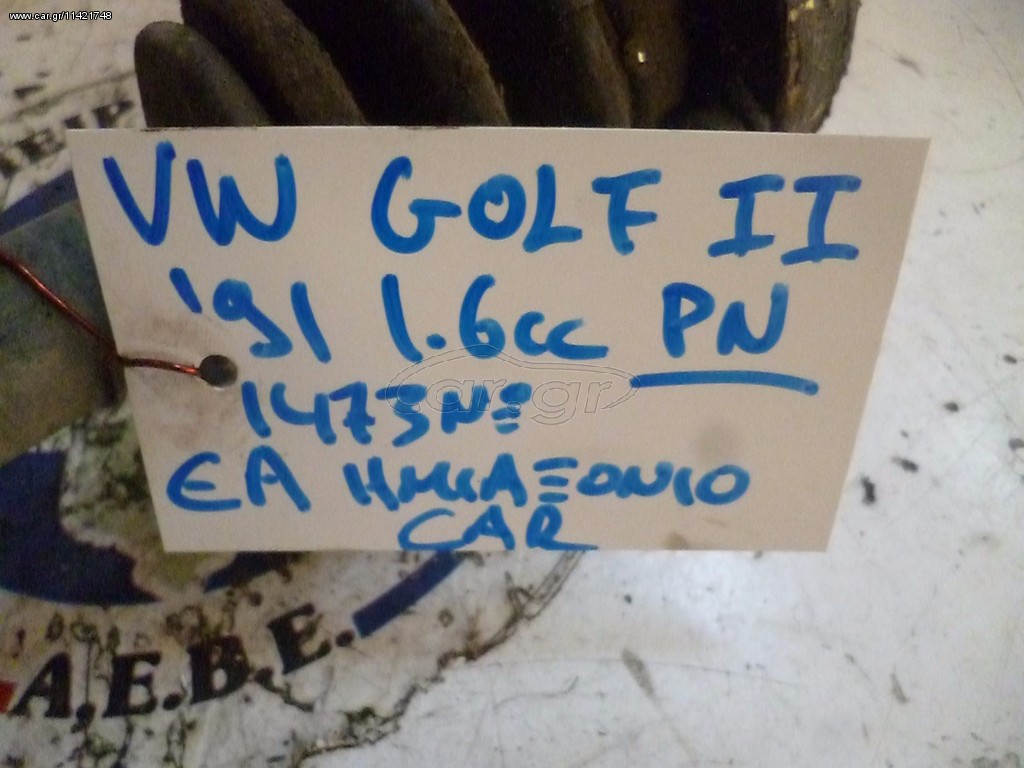 www.car.gr/11421748
VW GOLF II
'91 1.6cc PN
1473ΝΞ
ΕΔ ΗΜΙΑΞΟΝΙΟ
CAR
car.gr
Α.Ε.Β.Ε.